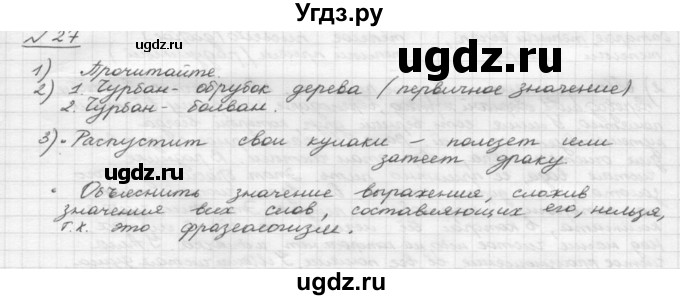 Угдз.ру
N 27
1) Прочитайте.
2) 1. Чурбан - обрубок дерева (первичное значение)
2. Чурбан - болван.
3) • Распустит свои кулаки - полезет или
затеет драку
• Объяснить значение выражения, сложив
значения всех слов, составляющих его, нельзя,
т.к. это фразеологизм.
ugdz.ru
ugdz.ru
ugdz.ru
ugdz.ru
ugdz.ru
ugdz.ru
ugdz.ru